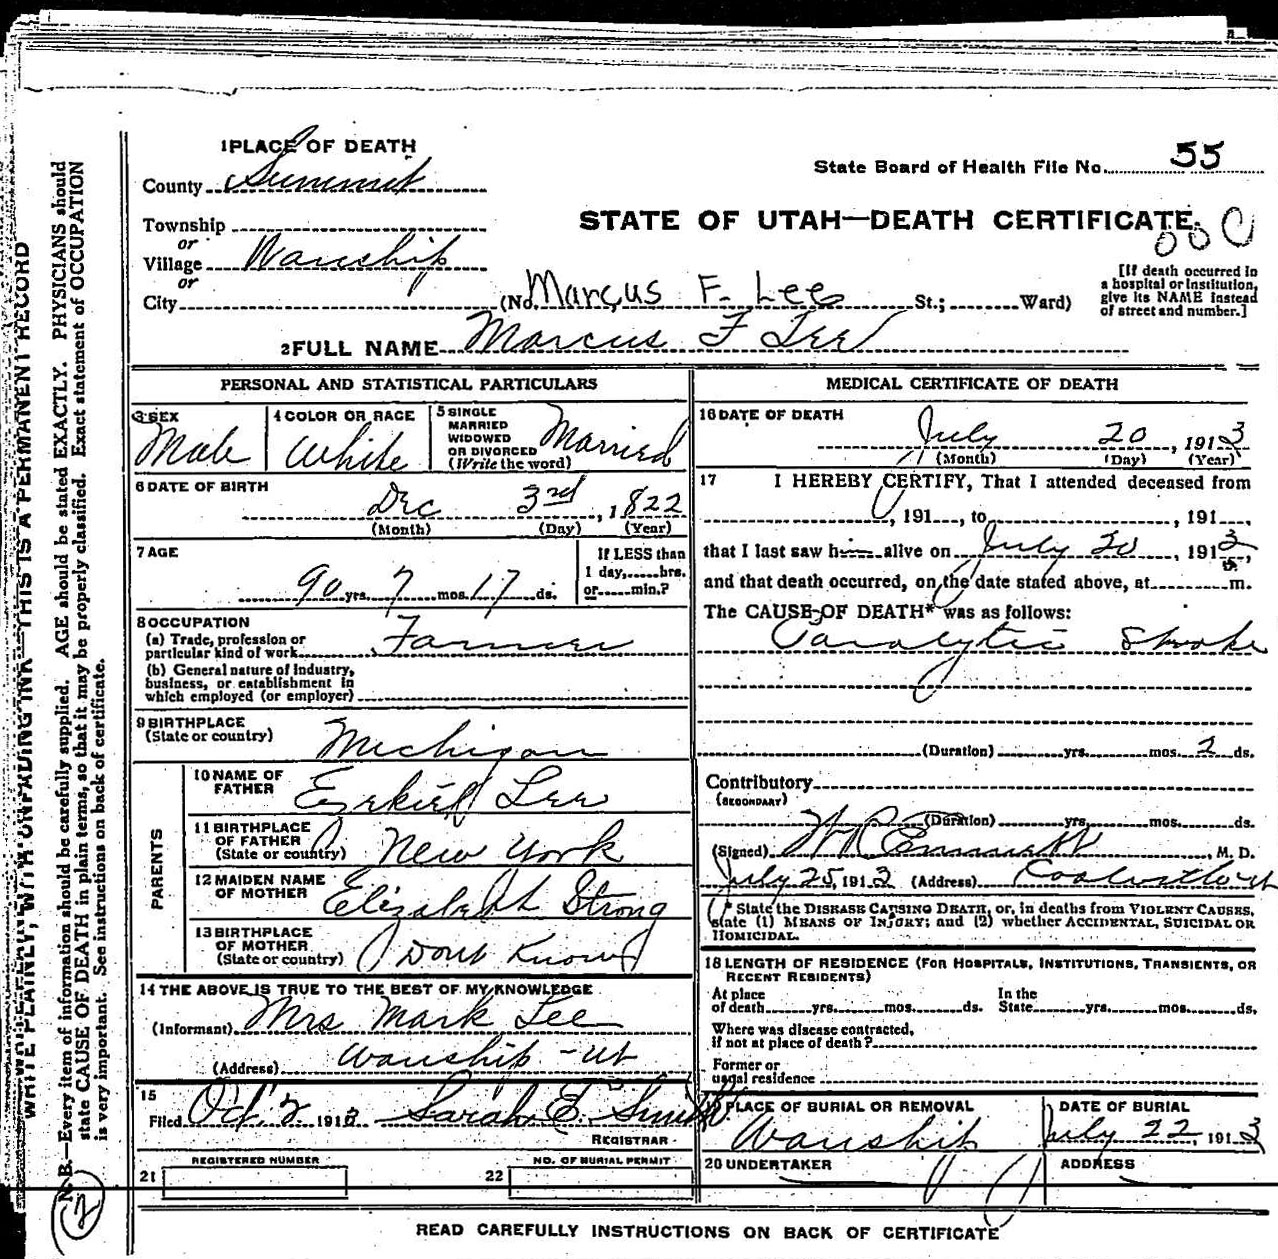 WRITE PLAINLY, WITH UNFADING INK—THIS IS A PERMANENT RECORD
N. B.—Every item of information should be carefully supplied. AGE should be stated EXACTLY. PHYSICIANS should
state CAUSE OF DEATH in plain terms, so that it may be properly classified. Exact statement of OCCUPATION
is very important. See instructions on back of certificate.
2
1 PLACE OF DEATH
County Summit
Township
or
Village Wanship
or
City
State Board of Health File No. 55
STATE OF UTAH—DEATH CERTIFICATE.
(No. Marcus F. Lee St.; Ward)
[If death occurred in
a hospital or institution,
give its NAME instead
of street and number.]
2 FULL NAME Marcus F Lee
PERSONAL AND STATISTICAL PARTICULARS
3 SEX
Male
4 COLOR OR RACE
White
5 SINGLE
MARRIED
WIDOWED
OR DIVORCED
(Write the word)
Married
6 DATE OF BIRTH
Dec 3rd, 1822
(Month) (Day) (Year)
7 AGE
90 yrs. 7 mos. 17 ds.
If LESS than
1 day, hrs.
or min.?
8 OCCUPATION
(a) Trade, profession or
particular kind of work Farmer
(b) General nature of industry,
business, or establishment in
which employed (or employer)
9 BIRTHPLACE
(State or country) Michigan
PARENTS
10 NAME OF
FATHER Ezekiel Lee
11 BIRTHPLACE
OF FATHER
(State or country) New York
12 MAIDEN NAME
OF MOTHER Elizabeth Strong
13 BIRTHPLACE
OF MOTHER
(State or country) Dont Know
14 THE ABOVE IS TRUE TO THE BEST OF MY KNOWLEDGE
(Informant) Mrs Mark Lee
(Address) Wanship - Ut
15
Filed Oct 2 1913 Sarah E. Smith
REGISTRAR
21 REGISTERED NUMBER
22 NO. OF BURIAL PERMIT
MEDICAL CERTIFICATE OF DEATH
16 DATE OF DEATH
July 20, 1913
(Month) (Day) (Year)
17 I HEREBY CERTIFY, That I attended deceased from
, 191 , to , 191 ,
that I last saw him alive on July 20, 1913,
and that death occurred, on the date stated above, at m.
The CAUSE OF DEATH* was as follows:
Paralytic Stroke
(Duration) yrs. mos. 2 ds.
Contributory
(SECONDARY)
(Duration) yrs. mos. ds.
(Signed) Emmett, M. D.
July 25, 1913 (Address)
* State the DISEASE CAUSING DEATH, or, in deaths from VIOLENT CAUSES,
state (1) MEANS OF INJURY; and (2) whether ACCIDENTAL, SUICIDAL OR
HOMICIDAL.
18 LENGTH OF RESIDENCE (FOR HOSPITALS, INSTITUTIONS, TRANSIENTS, OR
RECENT RESIDENTS)
At place
of death yrs. mos. ds.
In the
State yrs. mos. ds.
Where was disease contracted,
if not at place of death?
Former or
usual residence
PLACE OF BURIAL OR REMOVAL
Wanship
DATE OF BURIAL
July 22, 1913
20 UNDERTAKER
ADDRESS
READ CAREFULLY INSTRUCTIONS ON BACK OF CERTIFICATE